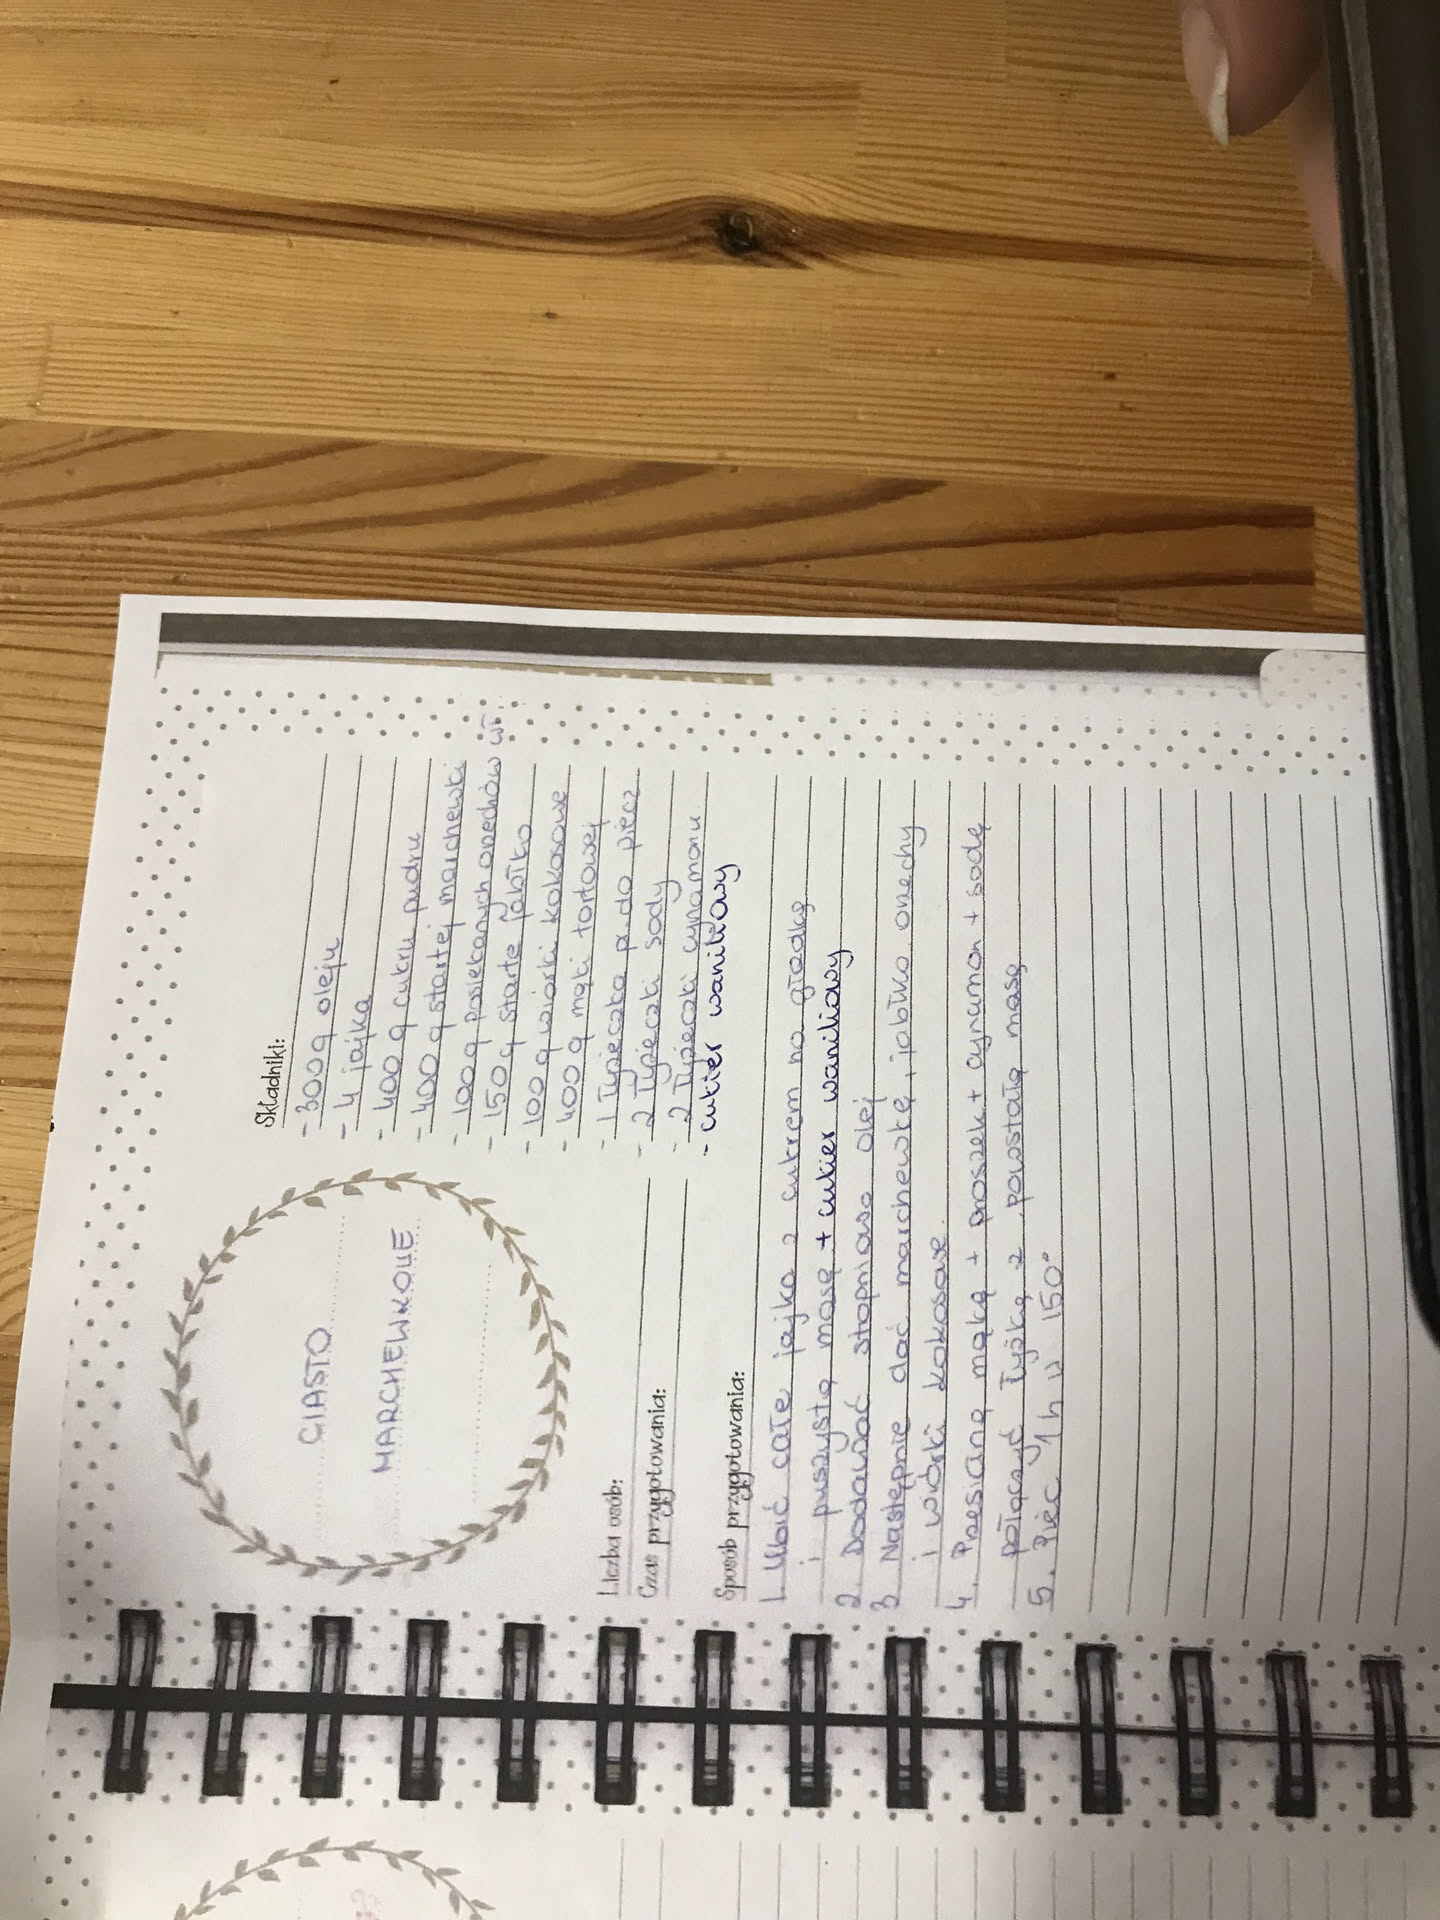 CIASTO
MARCHEWKOWE
Liczba osób:
Czas przygotowania:
Składniki:
- 300g oleju
- 4 jajka
- 400 g cukru pudru
- 400 g startej marchewki
- 100g posiekanych orzechów wł.
- 150 g starte jabłko
- 100 g wiórki kokosowe
- 400 g mąki tortowej
- 1 łyżeczka pr. do piecz
- 2 łyżeczki sody
- 2 łyżeczki cynamonu
- cukier waniliowy
Sposób przygotowania:
1. Ubić całe jajka z cukrem na gładką
i puszystą masę + cukier waniliowy
2. Dodawać stopniowo olej
3 Następnie dać marchewkę, jabłko, orzechy
i wiórki kokosowe.
4. Przesianą mąkę + proszek + cynamon + sodę
połączyć łyżką z powstałą masą
5. Piec 1h w 150°